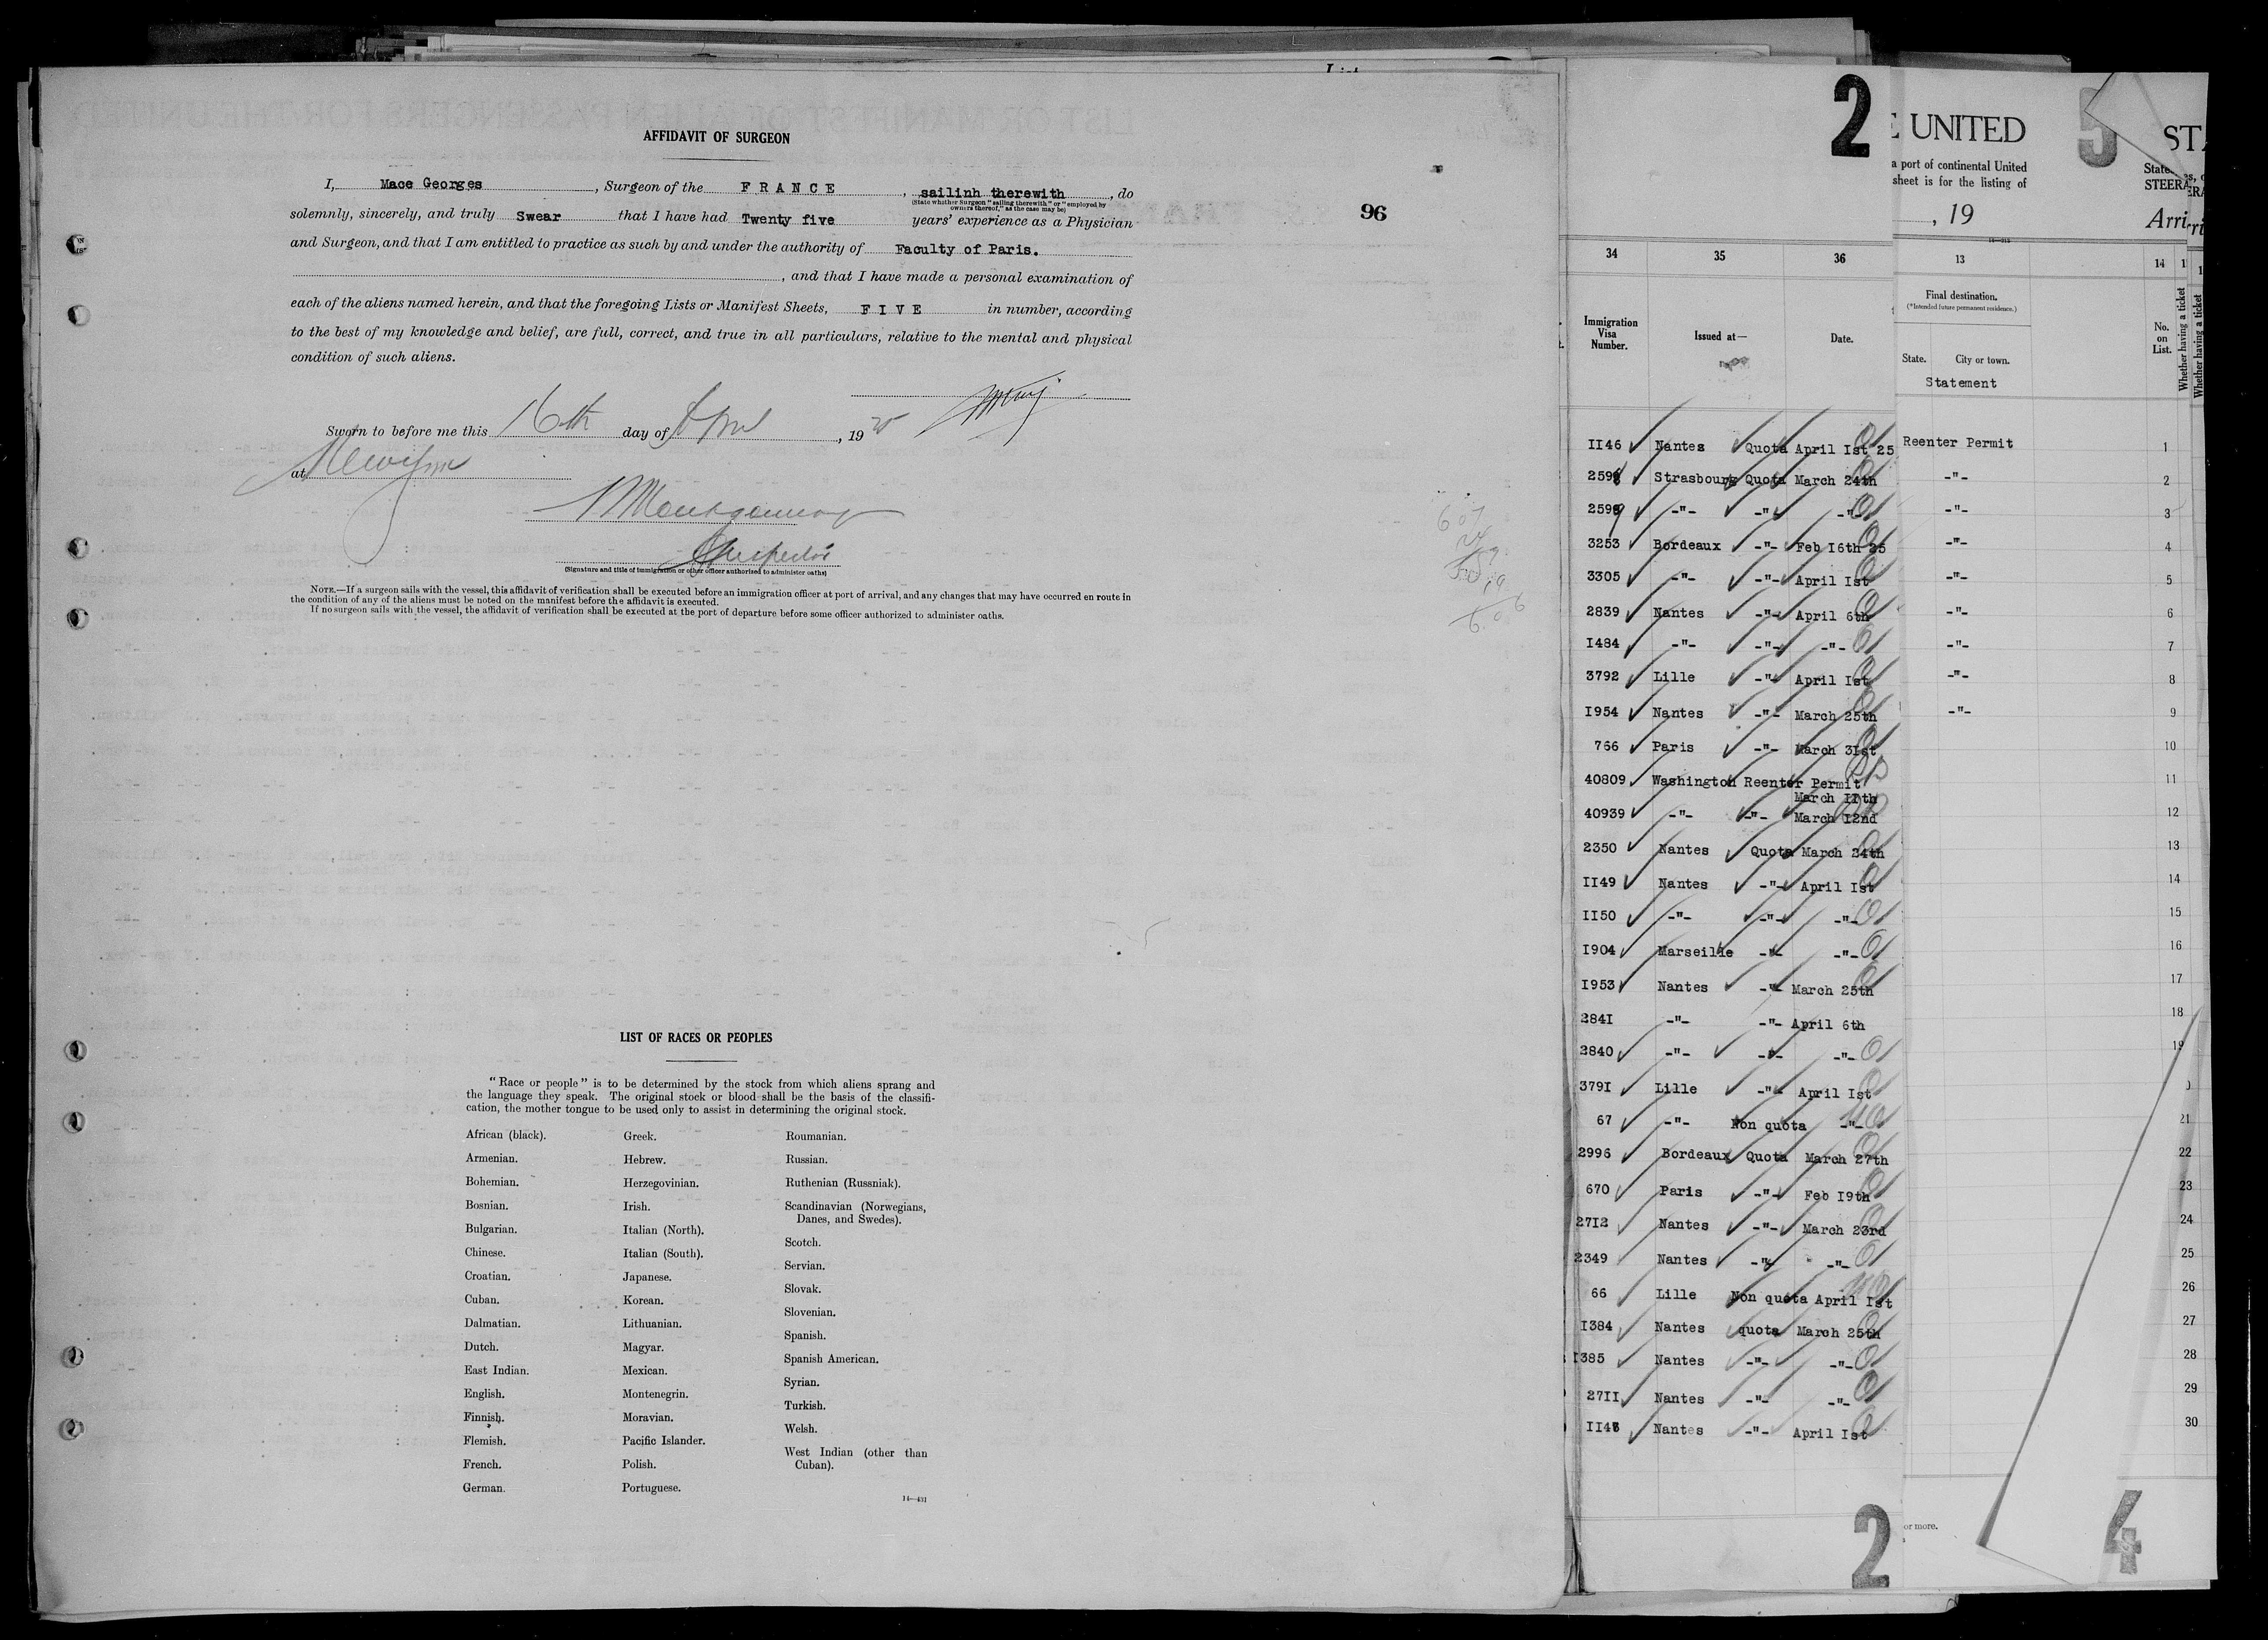 AFFIDAVIT OF SURGEON
I, Mace Georges, Surgeon of the FRANCE, sailinh therewith, do
(State whether Surgeon "sailing therewith" or "employed by
owners thereof," as the case may be)
solemnly, sincerely, and truly Swear that I have had Twenty five years' experience as a Physician
and Surgeon, and that I am entitled to practice as such by and under the authority of Faculty of Paris.
, and that I have made a personal examination of
each of the aliens named herein, and that the foregoing Lists or Manifest Sheets, FIVE in number, according
to the best of my knowledge and belief, are full, correct, and true in all particulars, relative to the mental and physical
condition of such aliens.
Sworn to before me this 16th day of April, 1925
at New York
Montgomery
Inspector
(Signature and title of immigration or other officer authorized to administer oaths)
NOTE.—If a surgeon sails with the vessel, this affidavit of verification shall be executed before an immigration officer at port of arrival, and any changes that may have occurred en route in
the condition of any of the aliens must be noted on the manifest before the affidavit is executed.
If no surgeon sails with the vessel, the affidavit of verification shall be executed at the port of departure before some officer authorized to administer oaths.
96
LIST OF RACES OR PEOPLES
"Race or people" is to be determined by the stock from which aliens sprang and
the language they speak. The original stock or blood shall be the basis of the classifi-
cation, the mother tongue to be used only to assist in determining the original stock.
African (black).
Armenian.
Bohemian.
Bosnian.
Bulgarian.
Chinese.
Croatian.
Cuban.
Dalmatian.
Dutch.
East Indian.
English.
Finnish.
Flemish.
French.
German.
Greek.
Hebrew.
Herzegovinian.
Irish.
Italian (North).
Italian (South).
Japanese.
Korean.
Lithuanian.
Magyar.
Mexican.
Montenegrin.
Moravian.
Pacific Islander.
Polish.
Portuguese.
Roumanian.
Russian.
Ruthenian (Russniak).
Scandinavian (Norwegians,
Danes, and Swedes).
Scotch.
Servian.
Slovak.
Slovenian.
Spanish.
Spanish American.
Syrian.
Turkish.
Welsh.
West Indian (other than
Cuban).
14—431
2
34 35 36
Immigration
Visa
Number.
Issued at—
Date.
1146 Nantes Quota April Ist 25
2598 Strasbourg Quota March 24th
2599 -"- -"- -"-
3253 Bordeaux -"- Feb I6th 25
3305 -"- -"- April Ist
2839 Nantes -"- April 6th
I484 -"- -"- -"-
3792 Lille -"- April Ist
I954 Nantes -"- March 25th
766 Paris -"- March 3Ist
40809 Washington Reenter Permit
March IIth
40939 -"- -"- March I2nd
2350 Nantes Quota March 24th
II49 Nantes -"- April Ist
II50 -"- -"- -"-
I904 Marseille -"- -"-
I953 Nantes -"- March 25th
284I -"- -"- April 6th
2840 -"- -"- -"-
379I Lille -"- April Ist
67 -"- Non quota -"-
2996 Bordeaux Quota March 27th
670 Paris -"- Feb I9th
27I2 Nantes -"- March 23rd
2349 Nantes -"- -"-
66 Lille Non quota April Ist
I384 Nantes quota March 25th
I385 Nantes -"- -"-
27II Nantes -"- -"-
II48 Nantes -"- April Ist
2
E UNITED
a port of continental United
sheet is for the listing of
, 19
13
Final destination.
(*Intended future permanent residence.)
State. City or town.
Statement
Reenter Permit
-"-
-"-
-"-
-"-
-"-
-"-
-"-
-"-
or more.
5
STA
STEERA
Arri
14
No.
on
List.
Whether having a ticket
Whether having a ticket
1
2
3
4
5
6
7
8
9
10
11
12
13
14
15
16
17
18
19
21
22
23
24
25
26
27
28
29
30
4